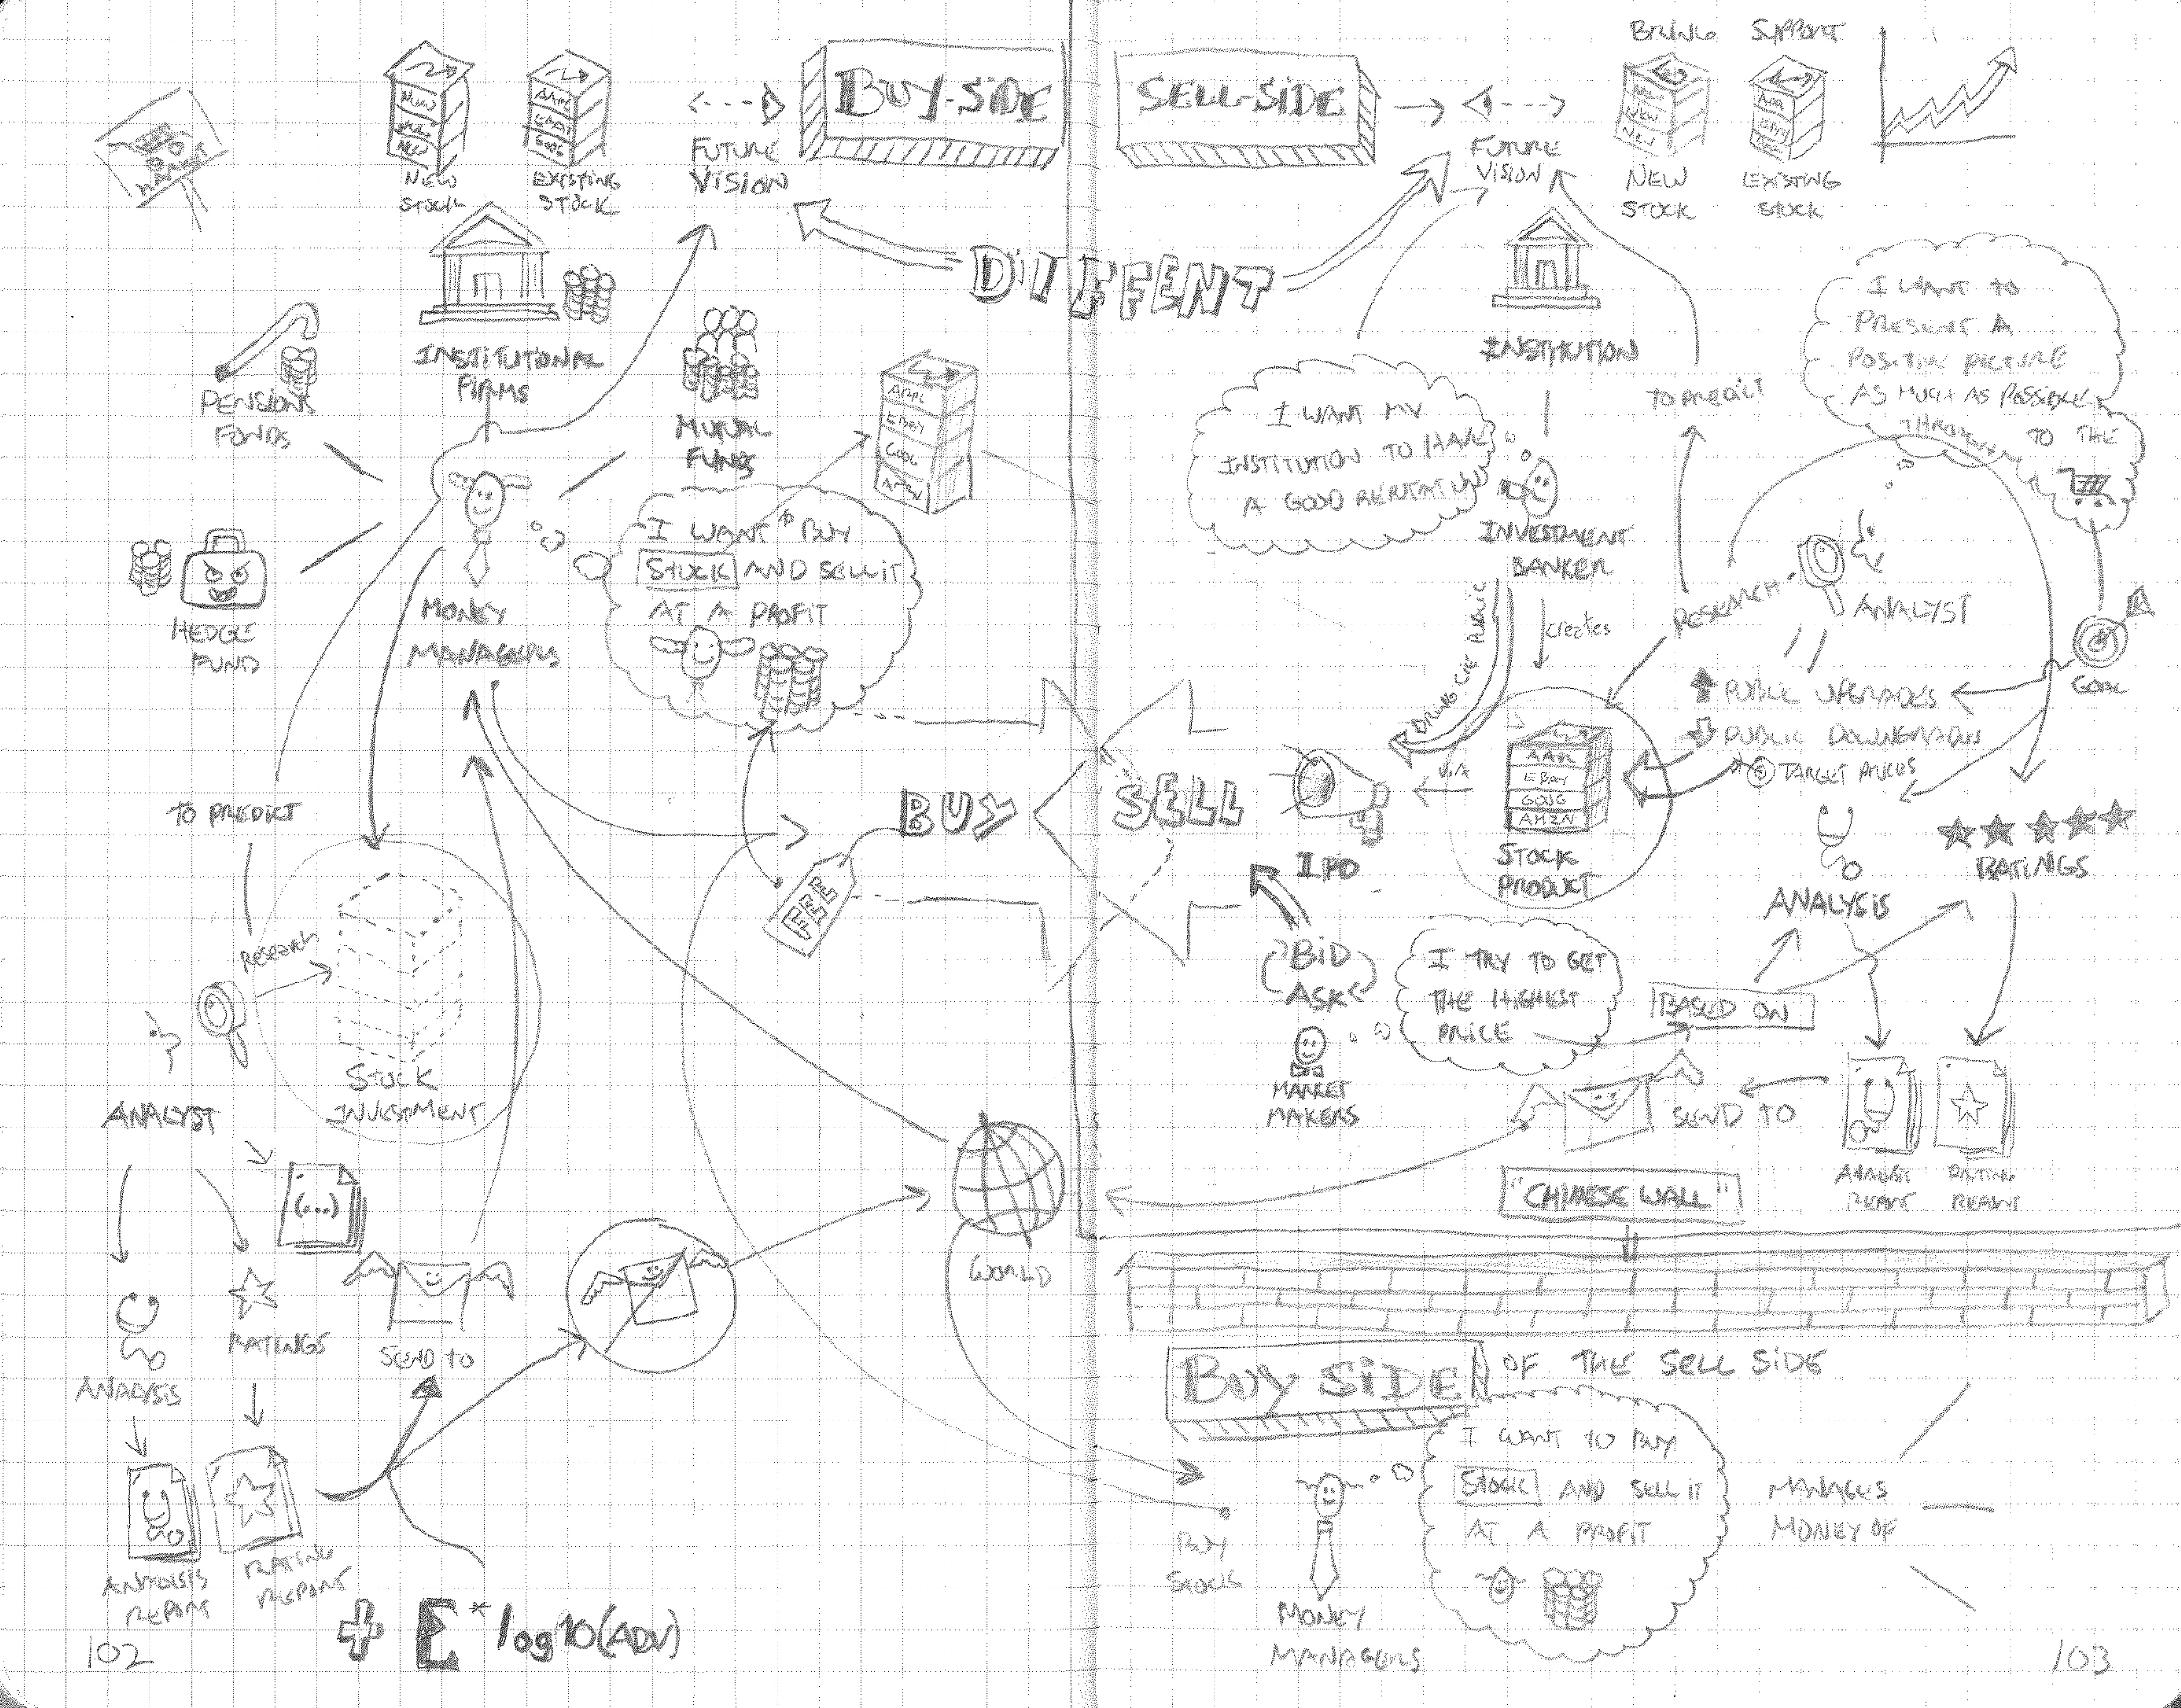 MARKET
NEW
NEW
NEW
NEW
STOCK
AAPL
EBAY
GOOG
EXISTING
STOCK
FUTURE
VISION
BUY-SIDE
INSTITUTIONAL
FIRMS
PENSIONS
FONDS
MUTUAL
FUNDS
AAPL
EBAY
GOOG
AMZN
HEDGE
FUND
MONEY
MANAGERS
I WANT TO BUY
STOCK AND SELL IT
AT A PROFIT
TO PREDICT
Research
STOCK
INVESTMENT
ANALYST
(...)
ANALYSIS
RATINGS
SEND TO
ANALYSIS
REPORT
RATING
REPORT
BUY
FEE
WORLD
+ E * log10(ADV)
102
DIFFENT
SELL-SIDE
FUTURE
VISION
BRING
NEW
NEW
NEW
NEW
STOCK
SUPPORT
EBAY
EXISTING
STOCK
INSTITUTION
I WANT MY
INSTITUTION TO HAVE
A GOOD REPUTATION
INVESTMENT
BANKER
TO PREDICT
I WANT TO
PRESENT A
POSITIVE PICTURE
AS MUCH AS POSSIBLE
TO THE
RESEARCH
ANALYST
GOAL
creates
BRING CIE PUBLIC
PUBLIC UPGRADES
PUBLIC DOWNGRADES
TARGET PRICES
SELL
IPO
VIA
AAPL
EBAY
GOOG
AMZN
STOCK
PRODUCT
ANALYSIS
RATINGS
BID
ASK
MARKET
MAKERS
I TRY TO GET
THE HIGHEST
PRICE
BASED ON
SEND TO
ANALYSIS
REPORT
RATING
REPORT
"CHINESE WALL"
BUY SIDE OF THE SELL SIDE
BUY
STOCK
MONEY
MANAGERS
I WANT TO BUY
STOCK AND SELL IT
AT A PROFIT
MANAGES
MONEY OF
103